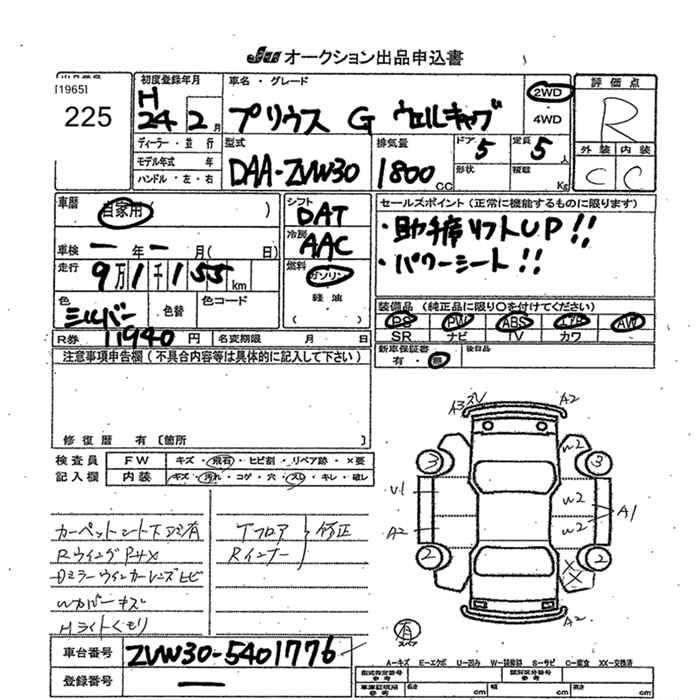 JU オークション出品申込書
[1965]
225
初度登録年月
H
24 2月
車名・グレード
プリウス G ウェルキャブ
2WD
4WD
評価点
R
外装 内装
C C
ディーラー・並行
モデル年式 年
ハンドル・左・右
型式
DAA-ZVW30
排気量
1800 CC
ドア 5
形状
定員 5人
積載 Kg
車歴
自家用 ( )
車検 ー年ー月( 日)
走行 9万1千155km
色
シルバー
色替
色コード
シフト
DAT
冷房
AAC
燃料
ガソリン
軽油
( )
セールスポイント(正常に機能するものに限ります)
・助手席リフトUP!!
・パワーシート!!
装備品(純正品に限り○を付けてください)
PS PW ABS エアB AW
SR ナビ TV カワ
R券 11940円 名変期限 月 日
新車保証書
有・無
後日品
注意事項申告欄(不具合内容等は具体的に記入して下さい)
修復歴 有〔箇所 〕
検査員
記入欄
FW キズ・飛石・ヒビ割・リペア跡・×要
内装 キズ・汚れ・コゲ・穴・スレ・キレ・破レ
カーペットシート下 有
RウイングPサX
Dミラーウインカーレンズヒビ
Wカバーキズ
Hライトくもり
Tフロア
Rインナー
修正
A3 スレ A2
3 3
W2
U1 W2
A2 W2 A1
2 2
XX
A2
有
スペア
A-キズ E-エクボ U-凹み W-補修跡 S-サビ C-腐食 XX-交換済
車台番号 ZVW30-5401776
登録番号 ー
型式指定番号
参考
類別区分番号
参考
車庫証明用
参考
長さ cm
幅 cm
高さ cm